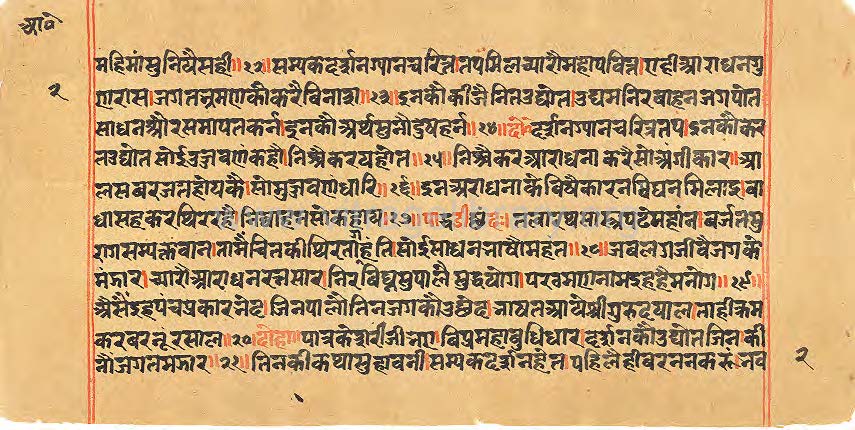 आरा०
महिमां सुनियै सही॥२२॥सम्यकदर्शनग्यानचरित्र।तपमिलच्यारौमहापवित्र।एहीआराधनगु
२
णरास।जगतभ्रमणकौकरैविनाश॥२३॥इनकौकीजैनितउद्योत।उद्यमनिरवाहनजगपोत
साधनऔरसमापतकर्न।इनकौअर्थसुनौदुषहर्न॥२४॥दोहा॥दर्शनग्यानचरित्रतप।इनकौकर
तउद्योतसोईउज्जवणकहौ।निश्चैकरयहहोत॥२५॥निश्चैकरआराधनाकरैसोअंगीकार॥आ
लसवरजनहोयकै।सोमुज्जवणधारि॥२६॥इनअराधनाकेविषैकारनविघनमिलाइ।बा
धासहकरथिररहै।निर्वाहनसोकहाय॥२७॥पाधडीछंद॥तत्वारथसास्त्रपढंमहांन।वर्जतसु
रागसम्यक्तवान।तामैंचितकीथिरताहंति।सोईसाधनभाषौमहंत॥२८॥जबलगजीवैजगके
मंझार।च्यारौआराधनरत्नसार।निरविघ्नसुपालैसुद्धयोग।परवमरणनामइहहैमनोग॥२९॥
अैसैंइहपंचप्रकारभेद।जिनपालौतिनजगकौउछेद।भाषतआथेश्रीगुरुदयाल।ताहीक्रम
करवरनूरसाल॥३०॥दोहा॥पात्रकेशरीजीभए।विप्रमहाबुधिधार।दर्शनकौउद्योतजिन।की
नौजगतमझार॥३१॥तिनकीकथासुहावनी।सम्यकदर्शनहेत।पहिलैहीवरननकरूं।भव
२